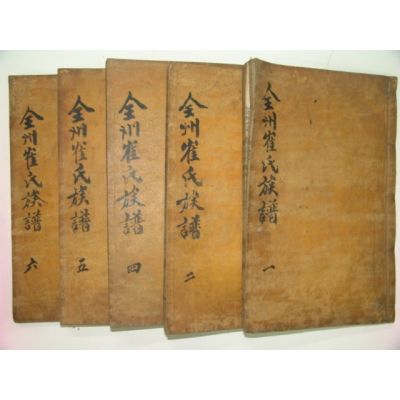 全州崔氏族譜 一
全州崔氏族譜 二
全州崔氏族譜 四
全州崔氏族譜 五
全州崔氏族譜 六